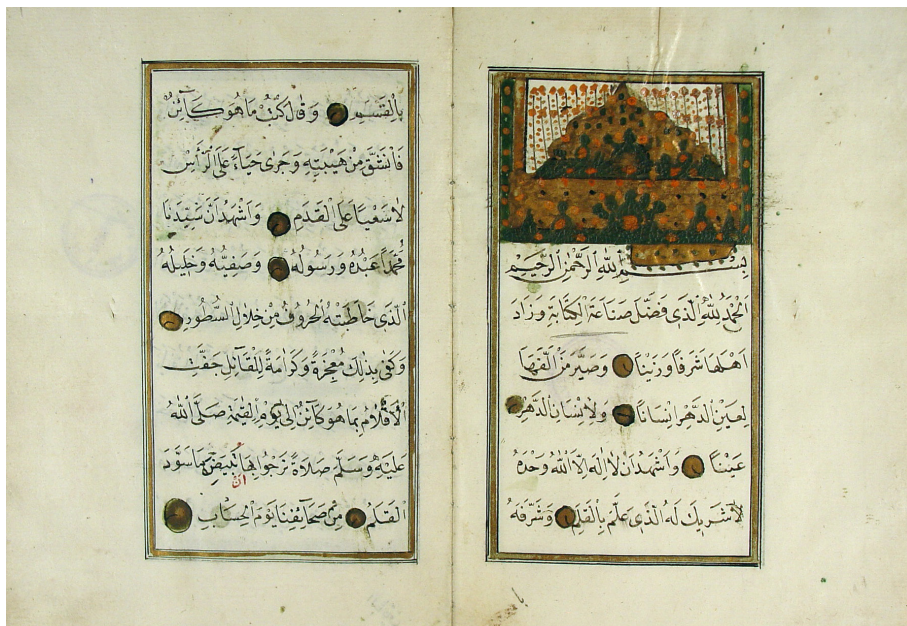 بِسْمِ اللهِ الرَّحْمٰنِ الرَّحِيْمِ
اَلْحَمْدُ لِلّٰهِ الَّذِى فَضَّلَ صَنَاعَةَ الْكِتَابَةِ وَزَادَ
اَهْلَهَا شَرَفًا وَزَيْنًا وَصَيَّرَ مَنْ اَلِفَهَا
لِعَيْنِ الدَّهْرِ اِنْسَانًا وَلِاِنْسَانِ الدَّهْرِ
عَيْنًا وَاَشْهَدُ اَنْ لَا اِلٰهَ اِلَّا اللهُ وَحْدَهُ
لَا شَرِيكَ لَهُ الَّذِى عَلَّمَ بِالْقَلَمِ وَشَرَّفَهُ
بِالْقَسَمِ وَقَالَ اكْتُبْ مَا هُوَ كَآئِنٌ
فَانْشَقَّ مِنْ هَيْبَتِهِ وَجَرٰى حَيَاءً عَلَى الرَّأْسِ
لَا سَعْيًا عَلَى الْقَدَمِ وَاَشْهَدُ اَنَّ سَيِّدَنَا
مُحَمَّدًا عَبْدُهُ وَرَسُولُهُ وَصَفِيُّهُ وَخَلِيلُهُ
الَّذِى خَاطَبَتْهُ الْحُرُوفُ مِنْ خِلَالِ السُّطُورِ
وَكَفٰى بِذٰلِكَ مُعْجِزَةً وَكَرَامَةً لِلْقَائِلِ جَفَّتِ
الْاَقْلَامُ بِمَا هُوَ كَآئِنٌ اِلٰى يَوْمِ الْقِيٰمَةِ صَلَّى اللهُ
عَلَيْهِ وَسَلَّمَ صَلَاةً نَرْجُوا بِهَا اَنْ تُبَيِّضَ مَا سَوَّدَ
الْقَلَمُ مِنْ صَحَايِفِنَا يَوْمَ الْحِسَابِ